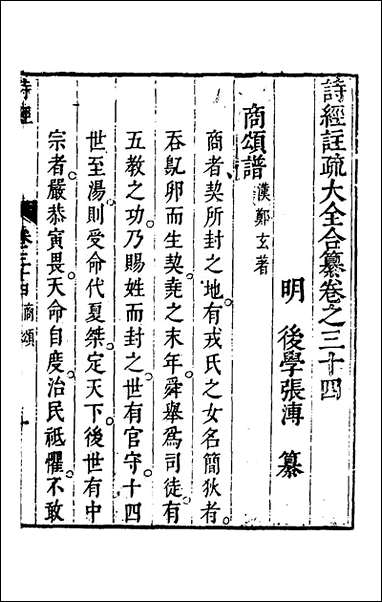 詩經註疏大全合纂卷之三十四
明 後學張溥 纂
商頌譜 漢鄭玄著
商者契所封之地有戎氏之女名簡狄者
吞鳦卵而生契堯之末年舜舉爲司徒有
五教之功乃賜姓而封之世有官守十四
世至湯則受命代夏桀定天下後世有中
宗者嚴恭寅畏天命自度治民祗懼不敢
詩經
卷三十四 商頌
一